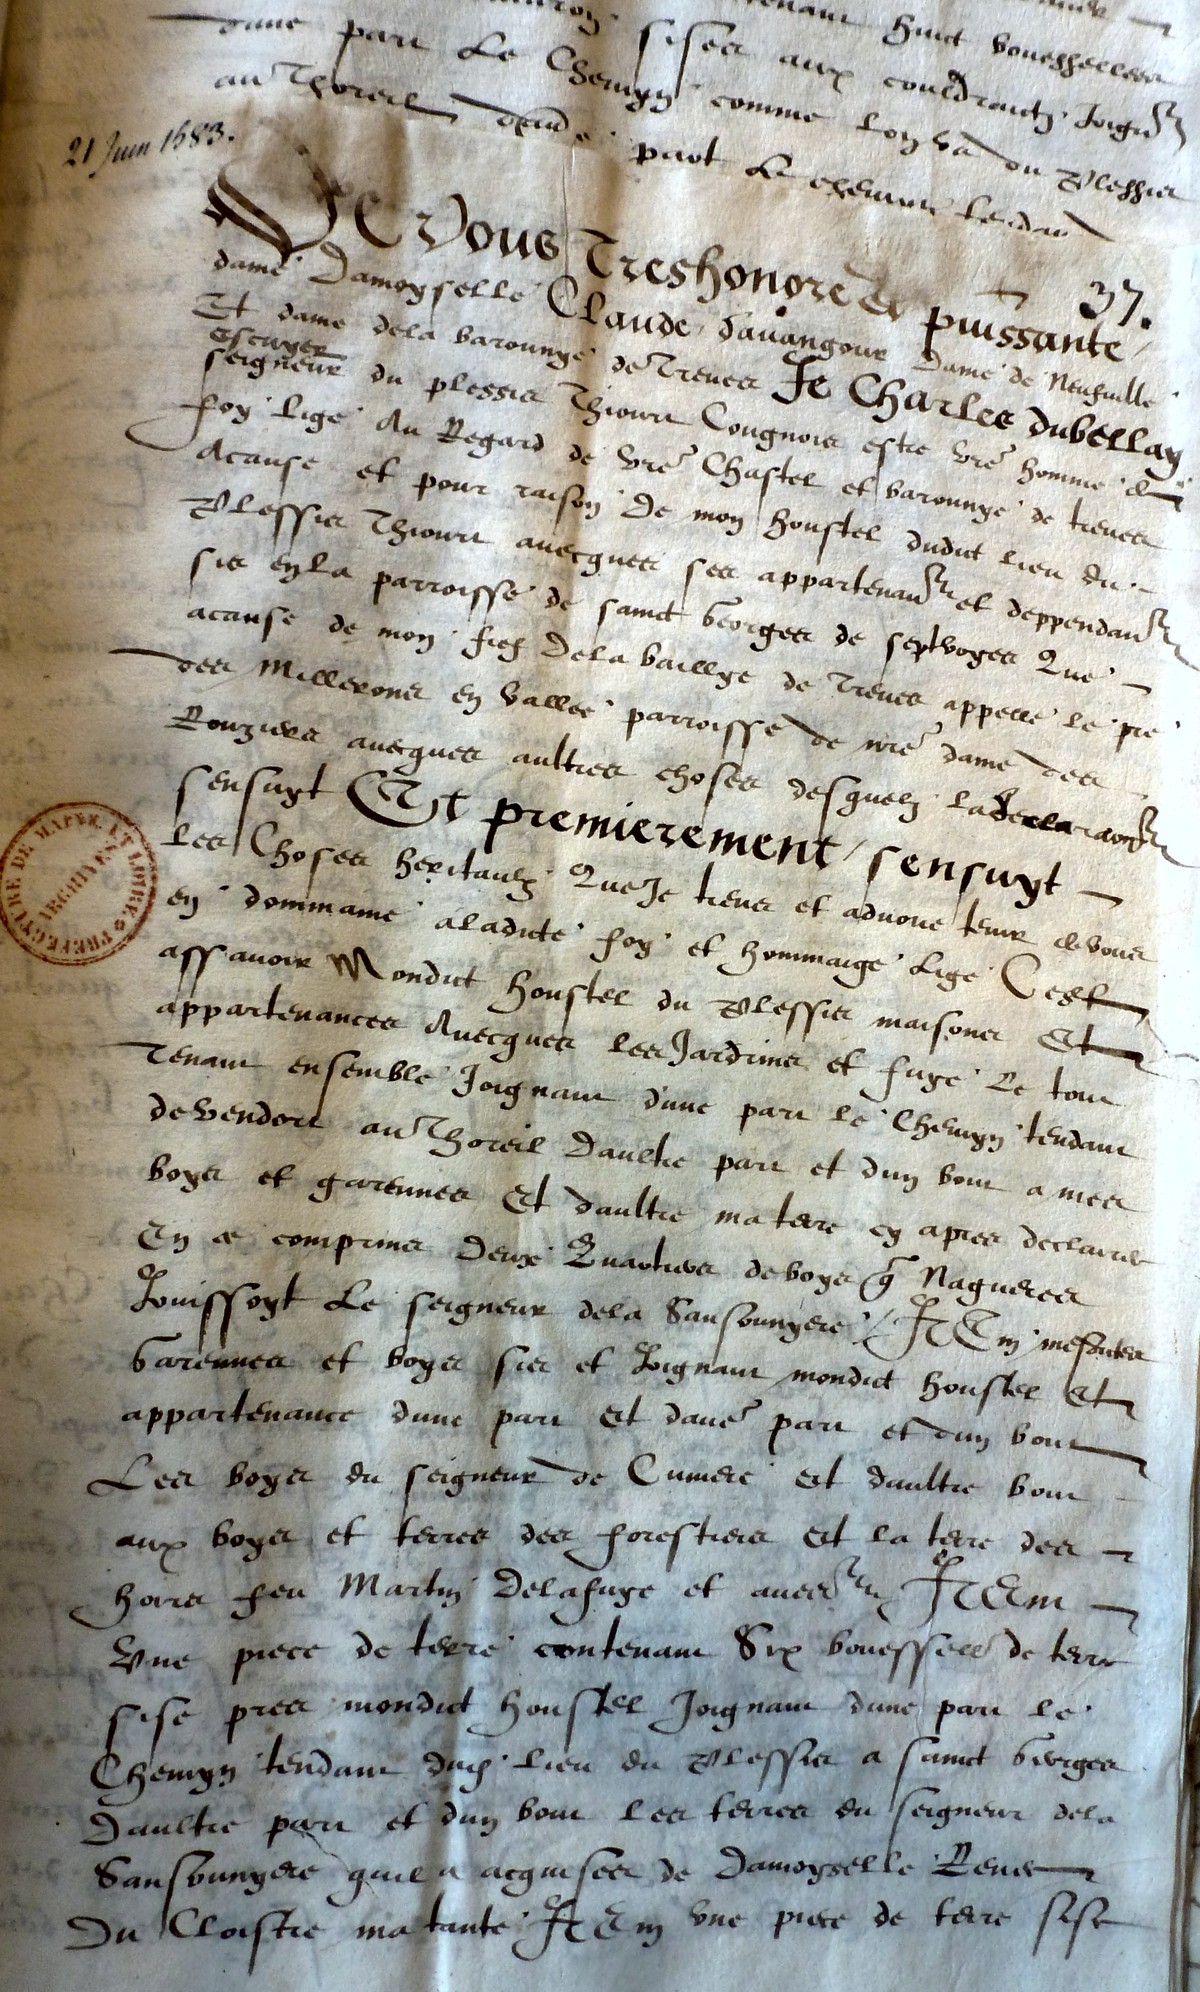 tenant huict bouesselees
dune part sises aux couldraiz Joign
Le Chemyn comme lon va du Plessis
au Thoreil daude part Le chemin tendan
21 Juin 1583.
De Vous Treshonoree et puissante
37.
dame Damoyselle Claude davangour Dame de Neufville
Et dame dela baronnye de Treves Je Charles dubellay
escuyer
seigneur du plessis Thiourt Congnois estre vre homme de
foy lige Au Regard de vre Chastel et baronnye de treves
Acause et pour raison De mon houstel dudict lieu du
Plessis Thiourt avecques ses appartenan et deppendan
sis en la parroisse de sainct Georges de septvoyes Que
acause de mon fief Dela baillye de Treves appelle le pre
des Millerons en vallee parroisse de nre dame des
Rouziers avecques aultres choses desquelz la declaraon
sensuyt Et premierement sensuyt
les Choses heritaulx Que Je tiens et advoue tenir de vous
en dommaine aladicte foy et hommaige lige Cest
assavoir Mondict houstel du Plessis maisons Et
appartenances Avecques les Jardrins et fuye Le tout
Tenant ensemble Joignant dune part le Chemyn tendant
de vendort au Thoreil Daultre part et dun bout a mes
boys et garennes Et daultre ma terre cy apres declairee
En ce comprins Deux Quartiers de boys q Nagueres
Jouissoyt Le seigneur dela Sansonnyere Item mesdictes
Garennes et boys sis et Joignant mondict houstel Et
appartenance dune part Et daue part et dun bout
Les boys du seigneur de Cumere Et daultre bout
aux boys et terres des forestiers Et la terre des
hoirs feu Martin Delafuye et aues Item
Une piece de terre contenant Six bouessell de terre
sise pres mondict houstel Joignant dune part le
Chemyn tendant dud lieu du Plessis a sainct Georges
Daultre part et dun bout les terres du seigneur dela
Sansonnyere quil a acquises de Damoyselle Renee
Du Cloistre ma tante Item une piece de terre sise
PREFECTURE DE MAINE ET LOIRE
ARCHIVES